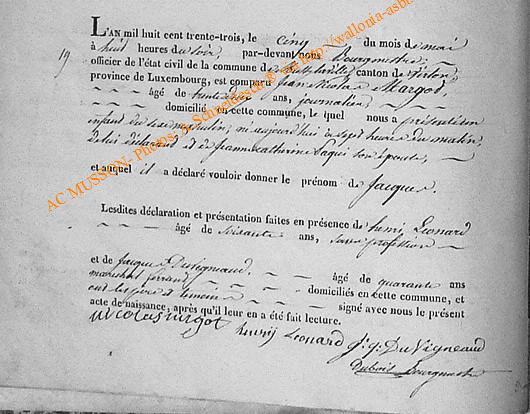 L'AN mil huit cent trente-trois, le cinq du mois de mai
19 à huit heures du soir par-devant nous Bourgmestre,
officier de l'état civil de la commune de canton de Virton,
province de Luxembourg, est comparu Jean Nicolas Margot,
âgé de trente ans, journalier
domicilié en cette commune, lequel nous a présenté un
enfant du sexe masculin, né aujourd'hui à sept heures du matin,
de lui déclarant et de Jeanne Catherine son épouse,
et auquel il a déclaré vouloir donner le prénom de Jacques.
Lesdites déclaration et présentation faites en présence de henri Léonard
âgé de soixante ans, sans profession
et de Jacques Duvigneaud. âgé de quarante ans
maréchal ferrant domiciliés en cette commune, et
ont les père et témoins signé avec nous le présent
acte de naissance, après qu'il leur en a été fait lecture.
nicolas margot henry Leonard J. J. DuVigneaud
Dubois Bourgmestre
AC MUSSON- Photos G. Schneidesch © ASBL http://wallonia-asb